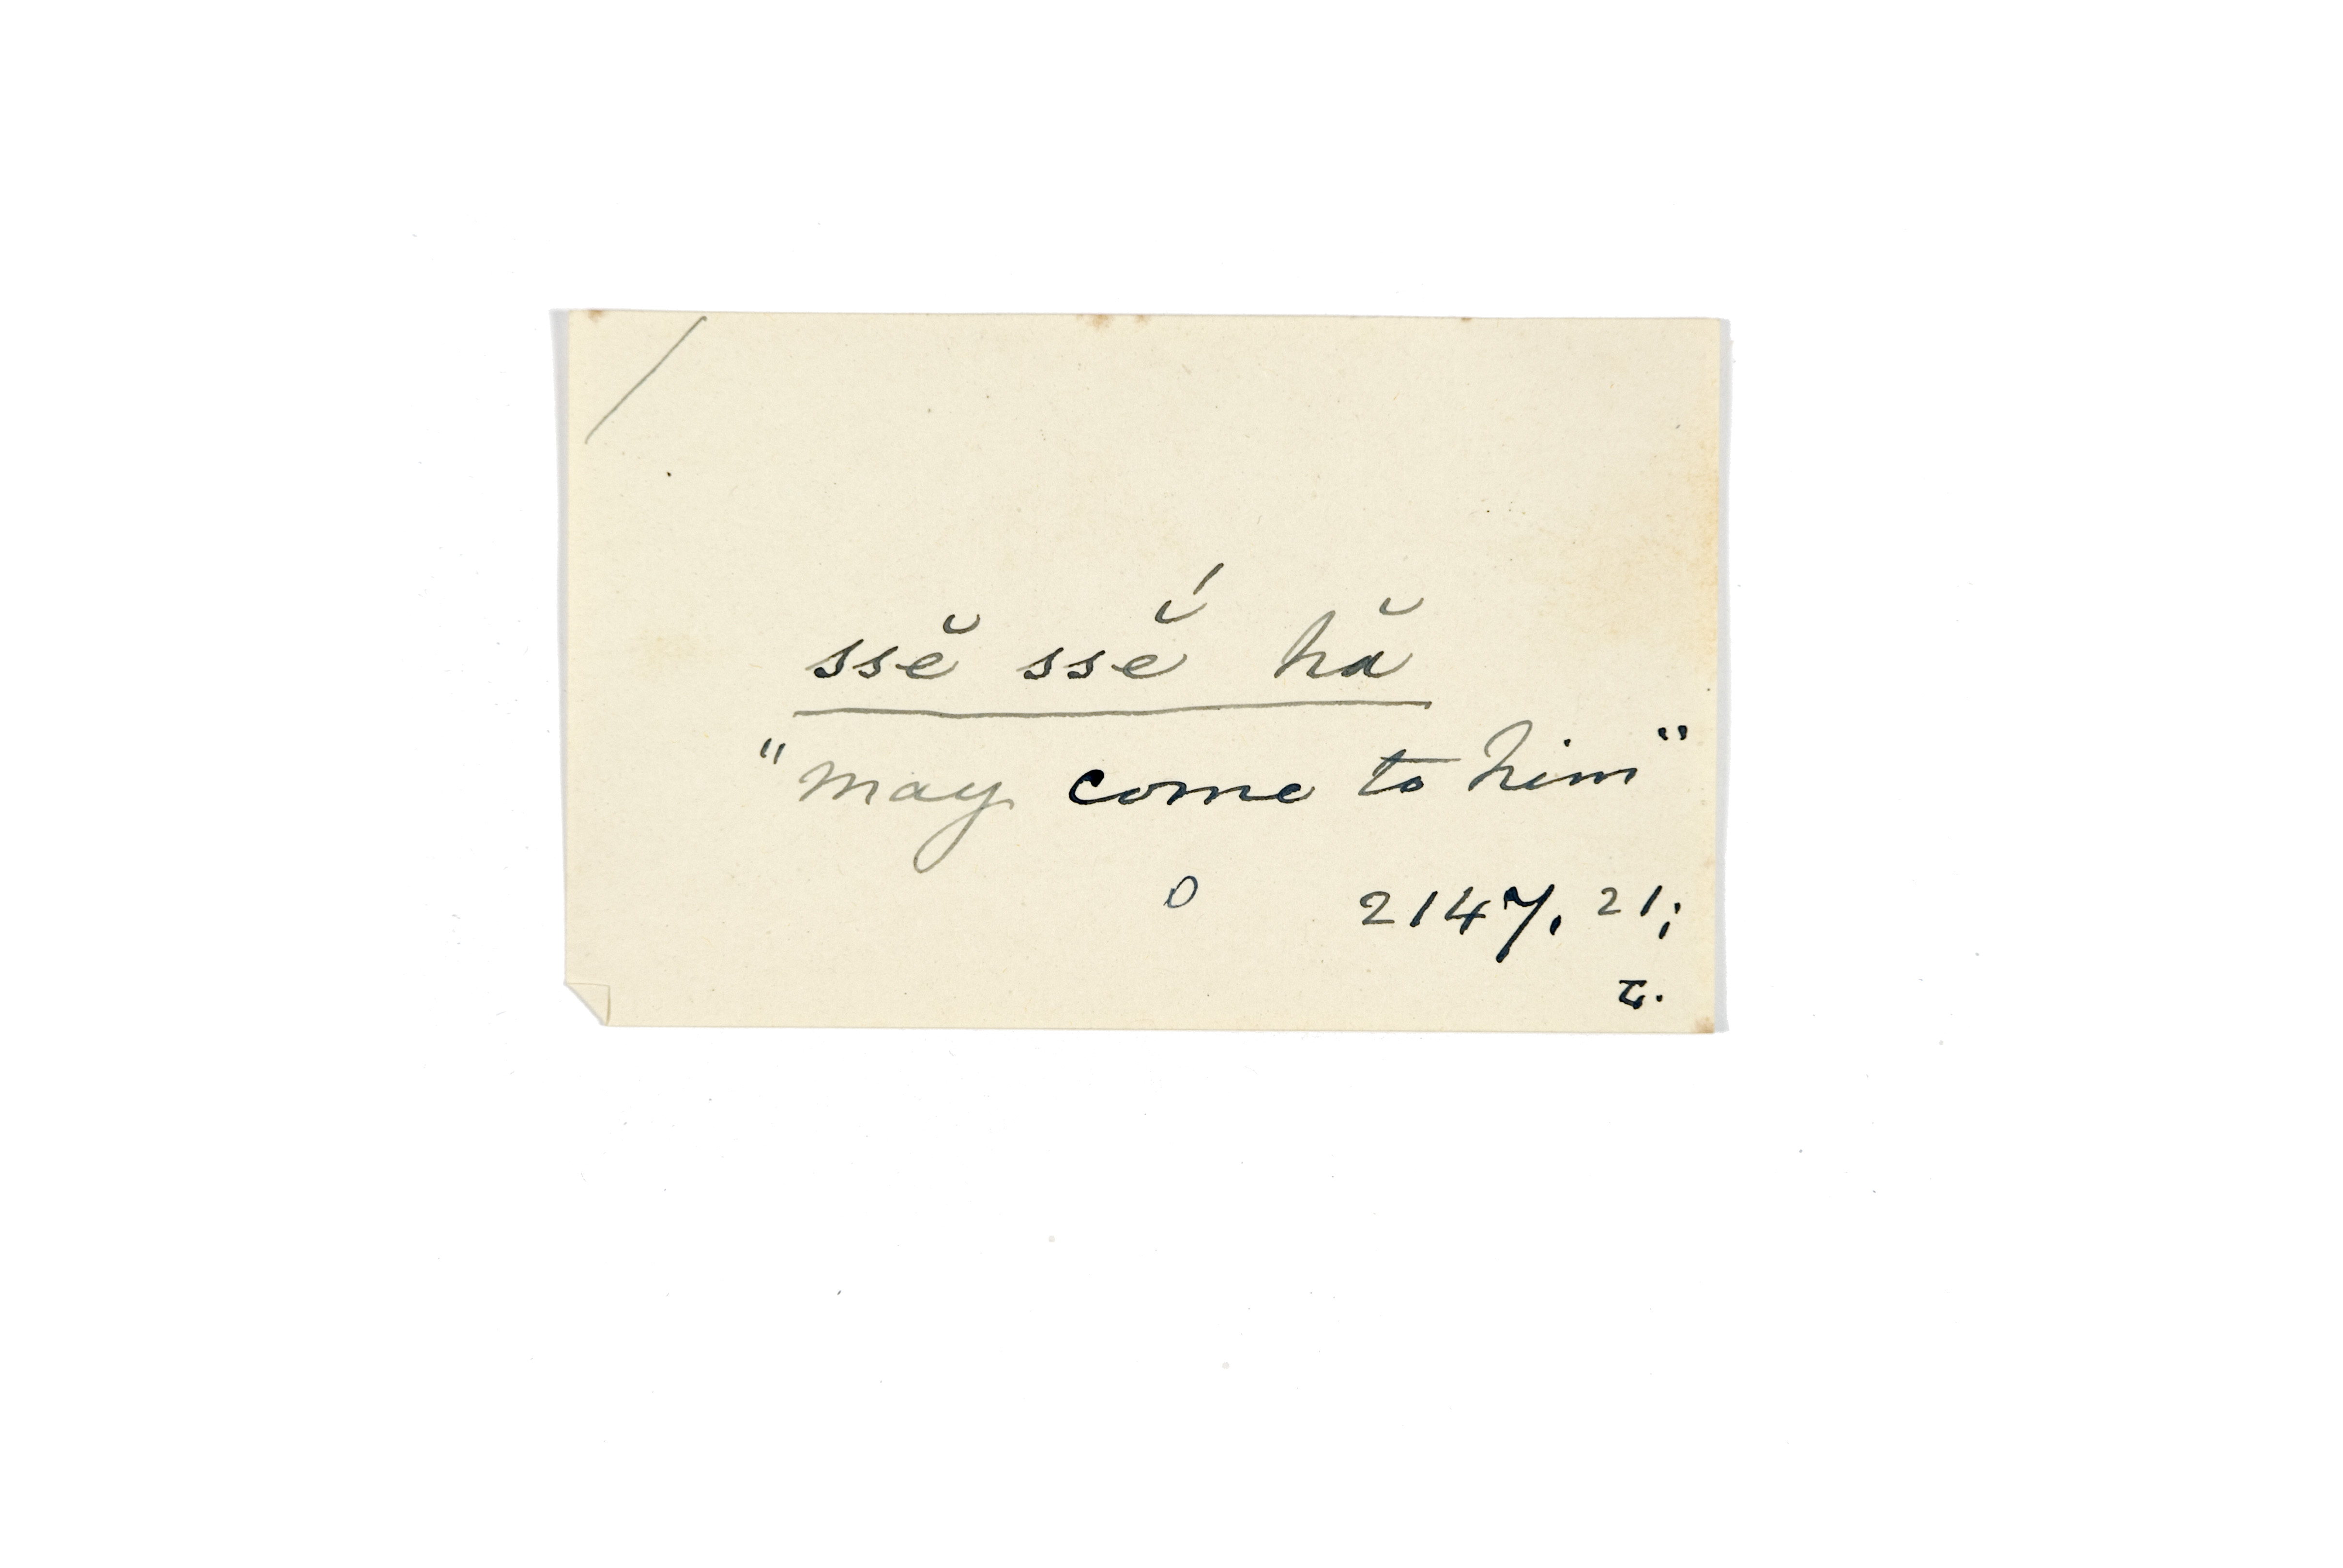 ssĕ ssĕ́ hă
"may come to him"
0 2147, 21;